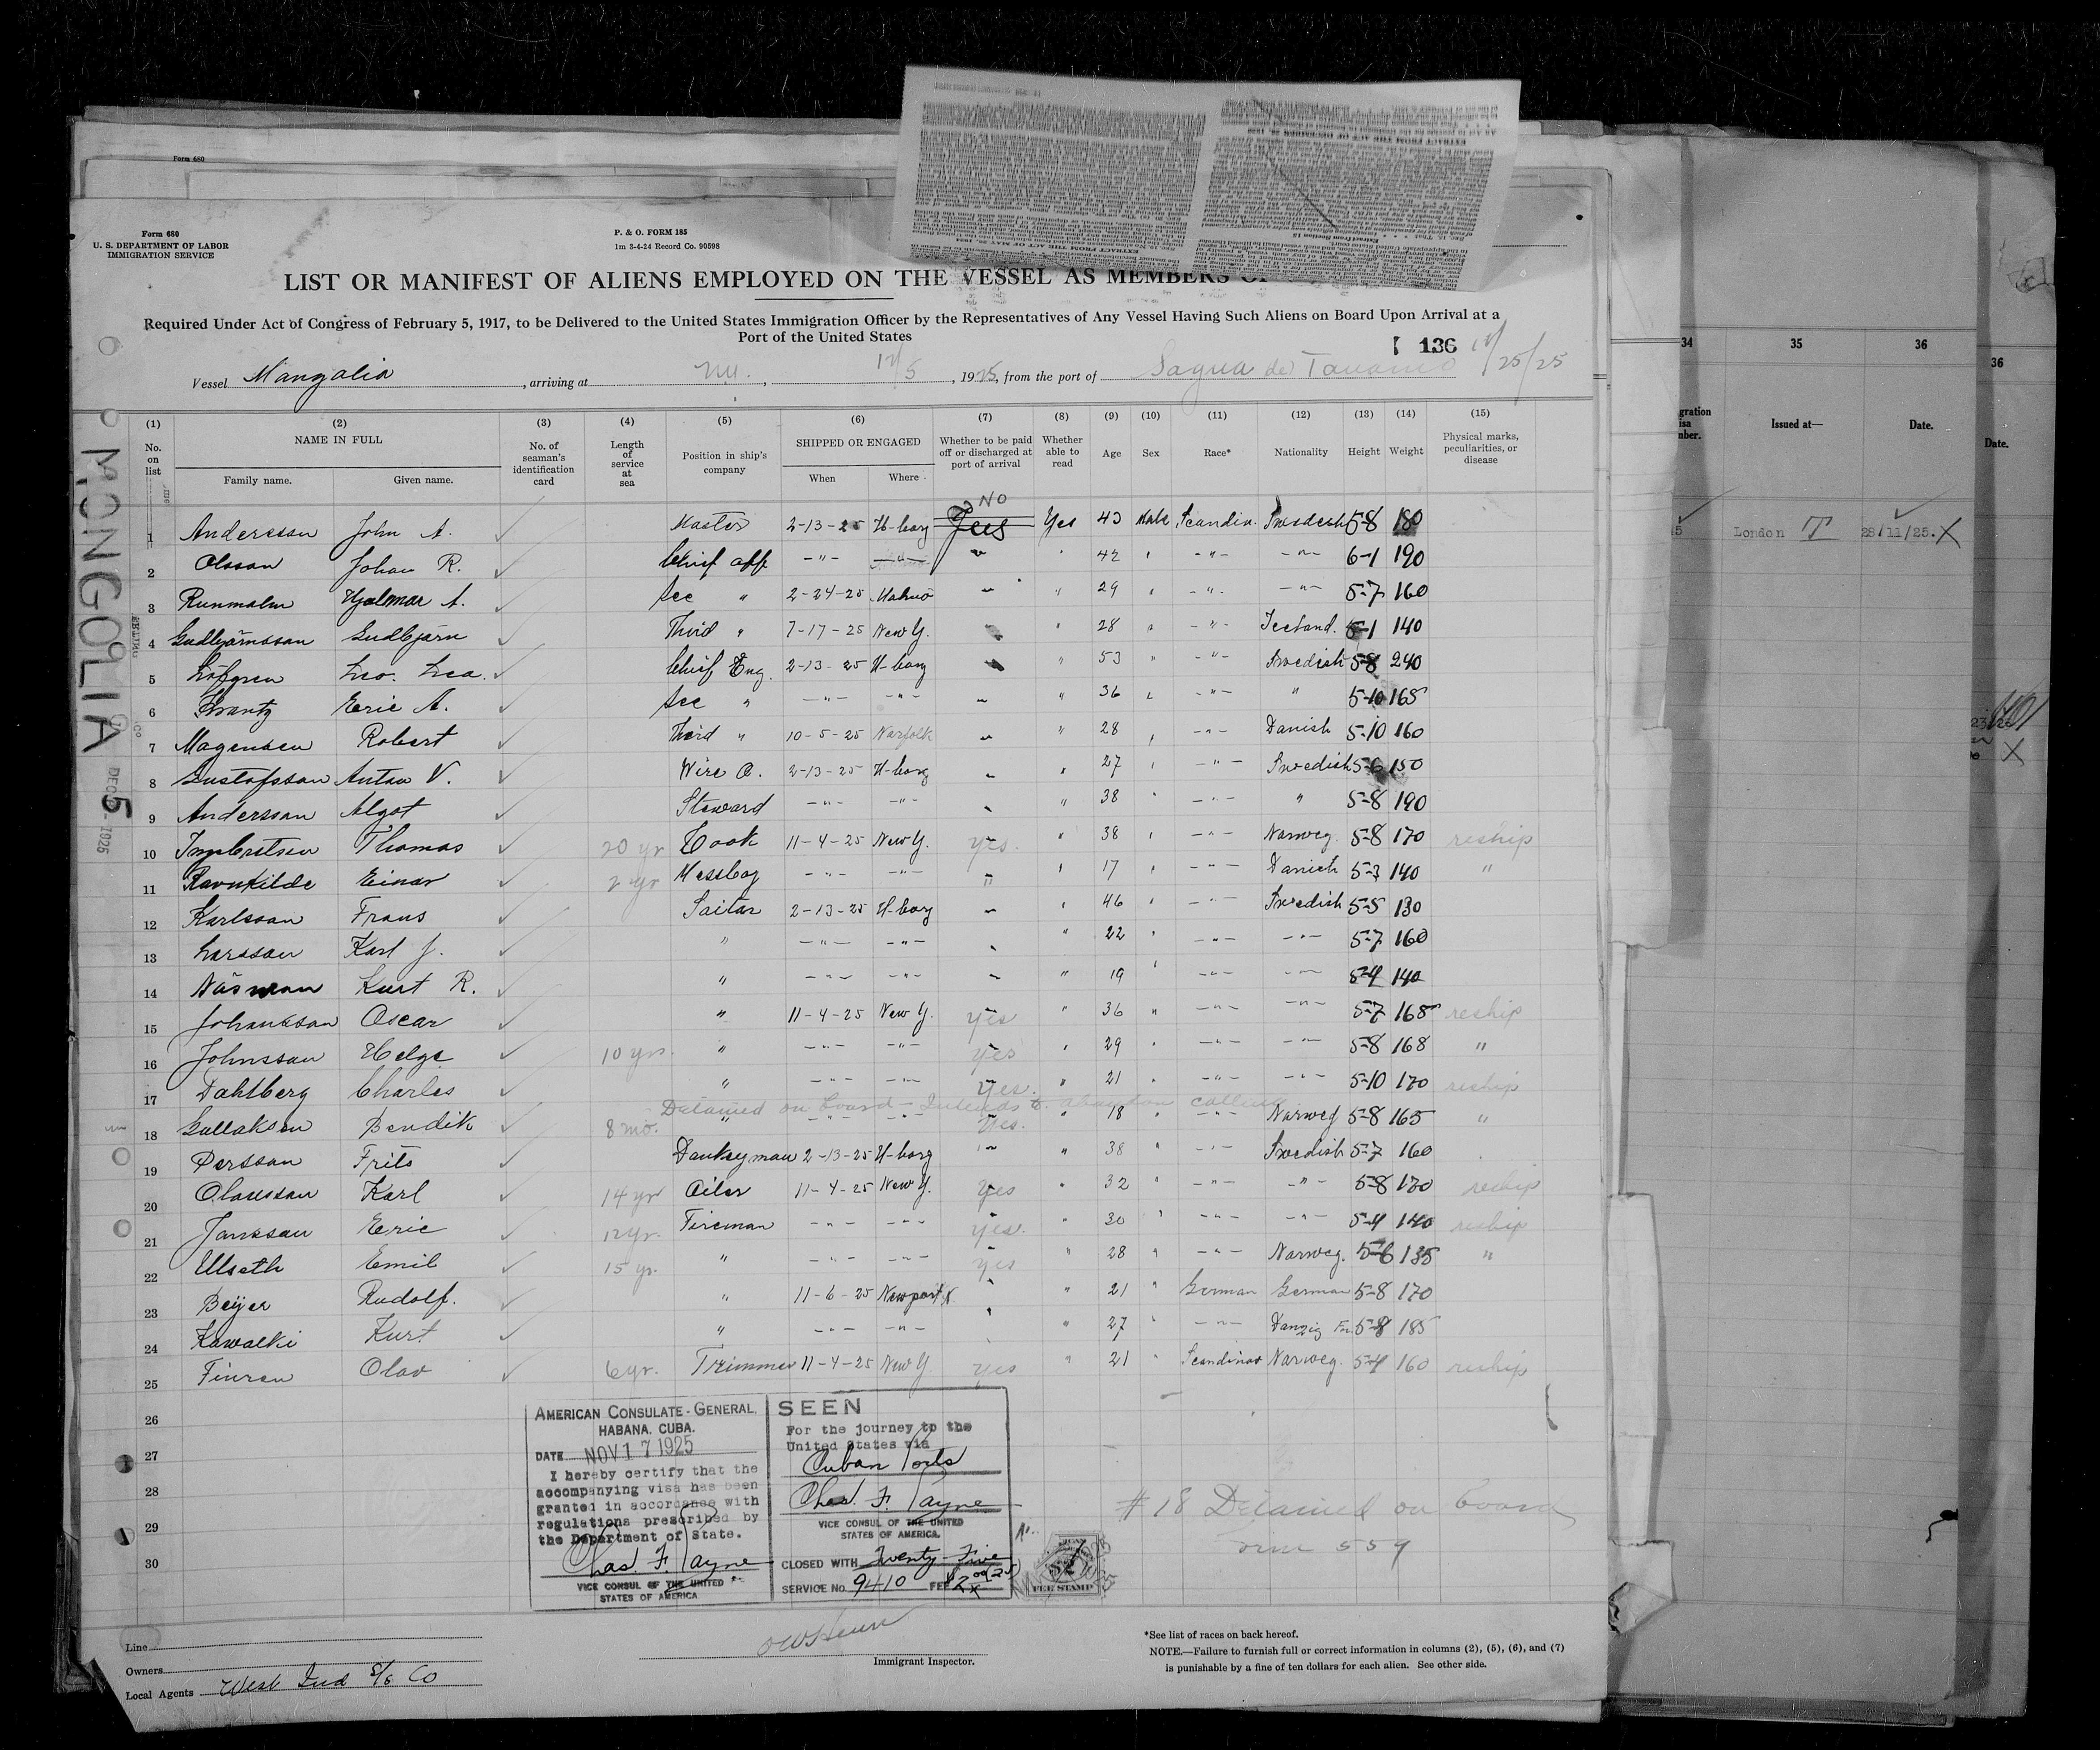 Form 680
Form 680
U. S. DEPARTMENT OF LABOR
IMMIGRATION SERVICE
P. & O. FORM 185
1m 3-4-24 Record Co. 90598
LIST OR MANIFEST OF ALIENS EMPLOYED ON THE VESSEL AS MEMBERS OF
Required Under Act of Congress of February 5, 1917, to be Delivered to the United States Immigration Officer by the Representatives of Any Vessel Having Such Aliens on Board Upon Arrival at a
Port of the United States
136
Vessel Mangolia, arriving at N.Y., 12/5, 1925, from the port of Sagua de Tanamo 11/25/25
(1) (2) (3) (4) (5) (6) (7) (8) (9) (10) (11) (12) (13) (14) (15)
No. on list NAME IN FULL Family name. Given name. No. of seaman's identification card Length of service at sea Position in ship's company SHIPPED OR ENGAGED When Where Whether to be paid off or discharged at port of arrival Whether able to read Age Sex Race* Nationality Height Weight Physical marks, peculiarities, or disease
NO
1 Andersson John A. Master 2-13-25 H-borg Yees Yes 43 Male Scandin. Swedish 5-8 180
2 Olsson Johan R. Chief off -"- -"- " 42 " -"- -"- 6-1 190
3 Runmalm Hjalmar A. Sec " 2-24-25 Malmö " " 29 " -"- -"- 5-7 160
4 Gudbjörnsson Gudbjörn Third " 7-17-25 New Y. " 28 " -"- Iceland. 5-1 140
5 Löfgren Leo. Lea. Chief Eng. 2-13-25 H-borg " 53 " -"- Swedish 5-8 240
6 Krantz Eric A. Sec " -"- -"- " " 36 " -"- " 5-10 165
7 Mogensen Robert Third " 10-5-25 Norfolk " " 28 " -"- Danish 5-10 160
8 Gustafsson Anton V. Wire O. 2-13-25 H-borg " " 27 " -"- Swedish 5-6 150
9 Andersson Algot Steward -"- -"- " " 38 " -"- " 5-8 190
10 Ingebretsen Thomas 20 yr Cook 11-4-25 New Y. yes. " 38 " -"- Norweg. 5-8 170 reship
11 Ravnkilde Einar 2 yr Messboy -"- -"- " " 17 " -"- Danish 5-3 140 "
12 Karlsson Frans Sailor 2-13-25 H-borg " " 46 " -"- Swedish 5-5 130
13 Larsson Karl J. " -"- -"- " " 22 " -"- -"- 5-7 160
14 Näsman Kurt R. " -"- -"- " " 19 " -"- -"- 5-4 140
15 Johansson Oscar " 11-4-25 New Y. yes " 36 " -"- -"- 5-7 168 reship
16 Johnsson Helge 10 yrs. " -"- -"- yes " 29 " -"- -"- 5-8 168 "
17 Dahlberg Charles " -"- -"- yes. " 21 " -"- -"- 5-10 170 reship
Detained on board - Intends to abandon calling
18 Gullaksen Bendik 8 mo. " -"- -"- yes. " 18 " -"- Norweg 5-8 165 "
19 Persson Frits Donkeyman 2-13-25 H-borg " " 38 " -"- Swedish 5-7 160
20 Olausson Karl 14 yr Oiler 11-4-25 New Y. yes " 32 " -"- -"- 5-8 170 reship
21 Jansson Eric 12 yr. Fireman -"- -"- yes. " 30 " -"- -"- 5-4 140 reship
22 Ellseth Emil 15 yr. " -"- -"- yes " 28 " -"- Norweg. 5-6 135 "
23 Beijer Rudolf. " 11-6-25 Newport N " " 21 " German German 5-8 170
24 Kawalki Kurt " -"- -"- " 27 " -"- Danzig Fr. 5-8 185
25 Finren Olav 6 yr. Trimmer 11-4-25 New Y. yes " 21 " Scandinav Norweg. 5-4 160 reship
26
27
28
29
30
AMERICAN CONSULATE-GENERAL,
HABANA, CUBA.
DATE NOV 17 1925
I hereby certify that the
accompanying visa has been
granted in accordance with
regulations prescribed by
the Department of State.
Chas. F. Payne
VICE CONSUL OF THE UNITED
STATES OF AMERICA
SEEN
For the journey to the
United States via
Cuban Ports
Chas. F. Payne
VICE CONSUL OF THE UNITED
STATES OF AMERICA.
CLOSED WITH Twenty-Five
SERVICE No. 9410 FEE $2
FEE STAMP
#18 Detained on board
Form 559
Line
Owners
Local Agents West Ind S/S Co
Immigrant Inspector.
*See list of races on back hereof.
NOTE.—Failure to furnish full or correct information in columns (2), (5), (6), and (7)
is punishable by a fine of ten dollars for each alien. See other side.
MONGOLIA
DEC 5 - 1925
34 35 36
Issued at— Date.
London T 28/11/25. X
36
Date.
X